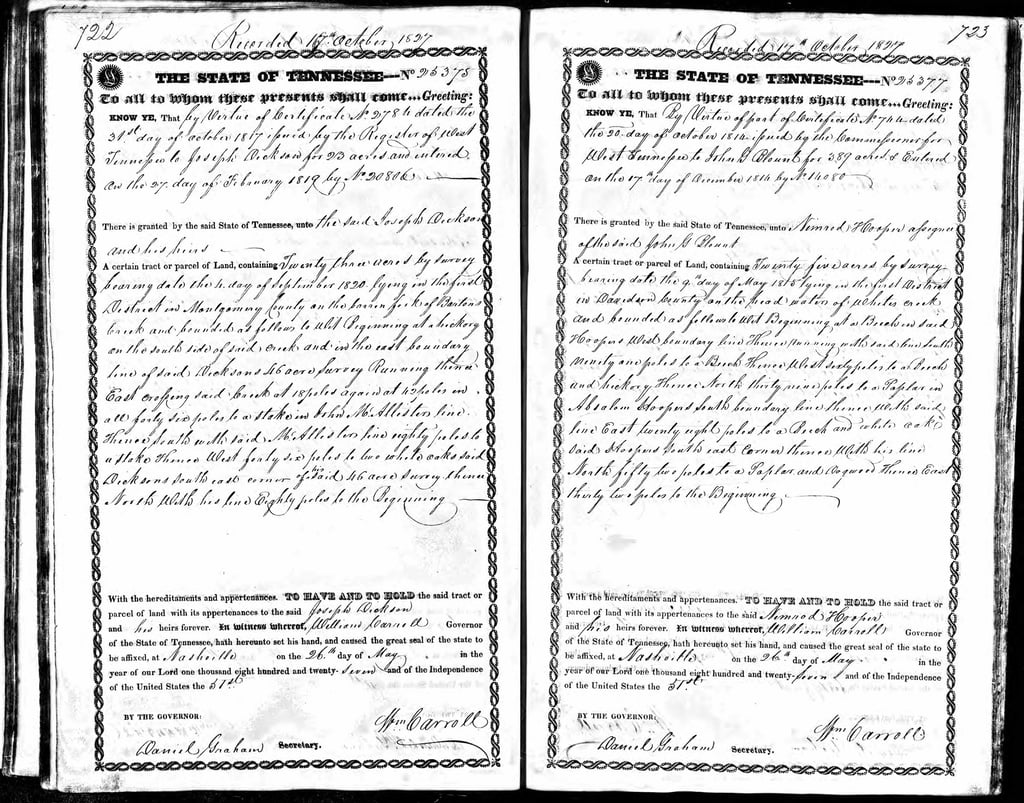 722
Recorded 17th October 1827
THE STATE OF TENNESSEE---No 25375
To all to whom these presents shall come... Greeting:
KNOW YE, That by Virtue of Certificate No 2784 dated the
31st day of October 1817 issued by the Register of West
Tennessee to Joseph Dickson for 23 acres and entered
on the 27. day of February 1819 by No 20806
There is granted by the said State of Tennessee, unto the said Joseph Dickson
and his heirs
A certain tract or parcel of Land, containing Twenty three acres by survey
bearing date the 4. day of September 1820 lying in the first
District in Montgomery County on the fork of Bartons
Creek and bounded as follows to Wit Beginning at a hickory
on the south side of said creek and in the east boundary
line of said Dicksons 46 acre Survey Running thence
East crossing said creek at 18 poles again at 42 poles in
all forty six poles to a stake in John McAllister line
Thence South with said McAllister line eighty poles to
a stake Thence West forty six poles to two white oaks said
Dicksons South east corner of his said 46 acre Survey thence
North With his line Eighty poles to the Beginning
With the hereditaments and appertenances. TO HAVE AND TO HOLD the said tract or
parcel of land with its appertenances to the said Joseph Dickson
and his heirs forever. In witness whereof, William Carroll Governor
of the State of Tennessee, hath hereunto set his hand, and caused the great seal of the state to
be affixed, at Nashville on the 26th day of May in the
year of our Lord one thousand eight hundred and twenty-seven and of the Independence
of the United States the 51st
BY THE GOVERNOR:
Wm Carroll
Daniel Graham Secretary.
723
Recorded 17th October 1827
THE STATE OF TENNESSEE---No 25377
To all to whom these presents shall come... Greeting:
KNOW YE, That By Virtue of part of Certificate No 744 dated
the 20 day of October 1814 issued by the Commissioner for
West Tennessee to John G Blount for 389 acres & Entered
on the 17th day of December 1814 by No 14080
There is granted by the said State of Tennessee, unto Nimrod Hooper assignee
of the said John G Blount
A certain tract or parcel of Land, containing Twenty five acres by Survey
bearing date the 9th day of May 1815 lying in the first District
in Davidson County on the head waters of Whites creek
and bounded as follows to Wit Beginning at a Beech in said
Hoopers West boundary line Thence running with said line South
ninety one poles to a Beech Thence West sixty poles to a Beech
and hickory Thence North thirty nine poles to a Poplar in
Absalem Hoopers South boundary line thence With said
line East twenty eight poles to a Beech and white oake
said Hoopers South east corner thence With his line
North fifty two poles to a Poplar and Dogwood Thence East
thirty two poles to the Beginning
With the hereditaments and appertenances. TO HAVE AND TO HOLD the said tract or
parcel of land with its appertenances to the said Nimrod Hooper
and his heirs forever. In witness whereof, William Carroll Governor
of the State of Tennessee, hath hereunto set his hand, and caused the great seal of the state to
be affixed, at Nashville on the 26th day of May in the
year of our Lord one thousand eight hundred and twenty-seven and of the Independence
of the United States the 51st
BY THE GOVERNOR:
Wm Carroll
Daniel Graham Secretary.